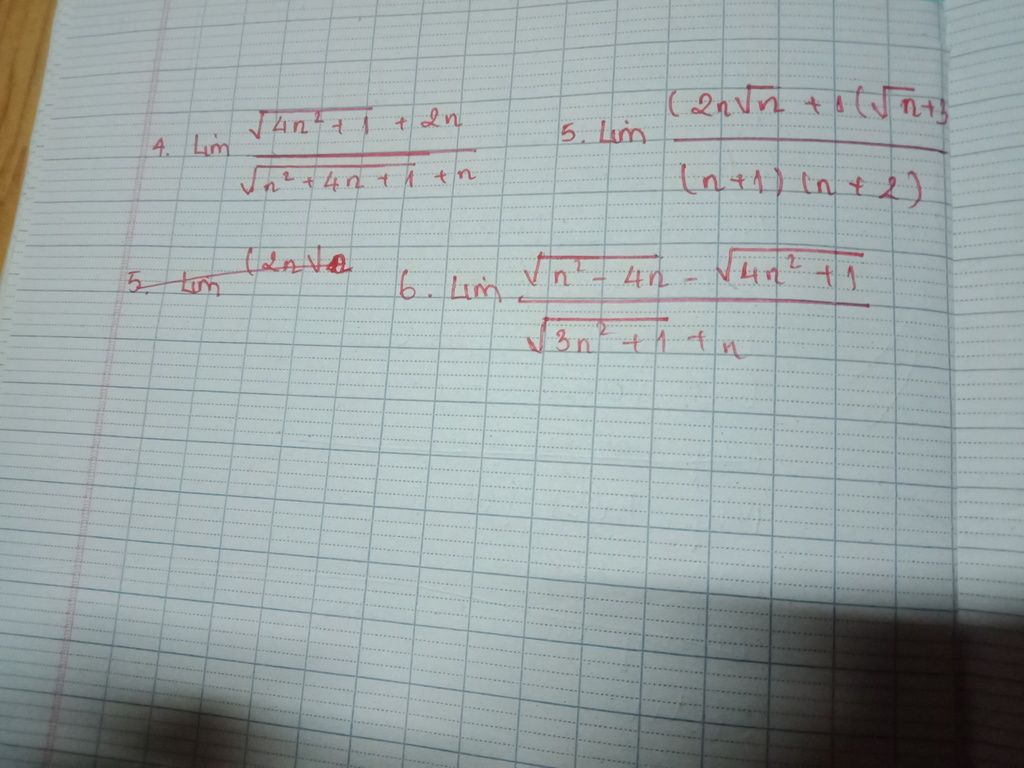 4. Lim (√(4n² + 1) + 2n) / (√(n² + 4n + 1) + n)
5. Lim (2n√n + 1 (√n+3 / (n+1) (n+2)
5. Lim (2n√
6. Lim (√(n² - 4n) - √(4n² + 1)) / (√(3n² + 1) + n)